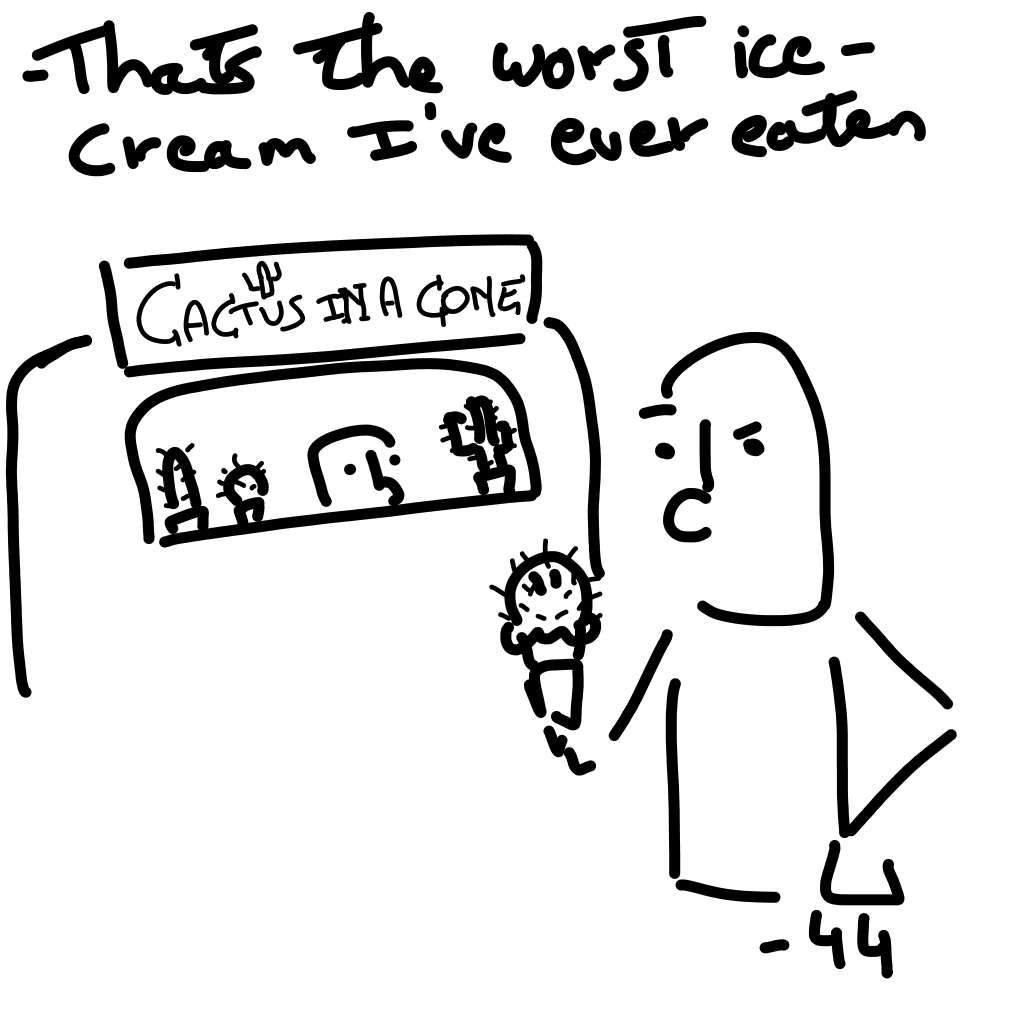 -Thats the worst ice-
cream I've ever eaten
CACTUS IN A CONE
-44